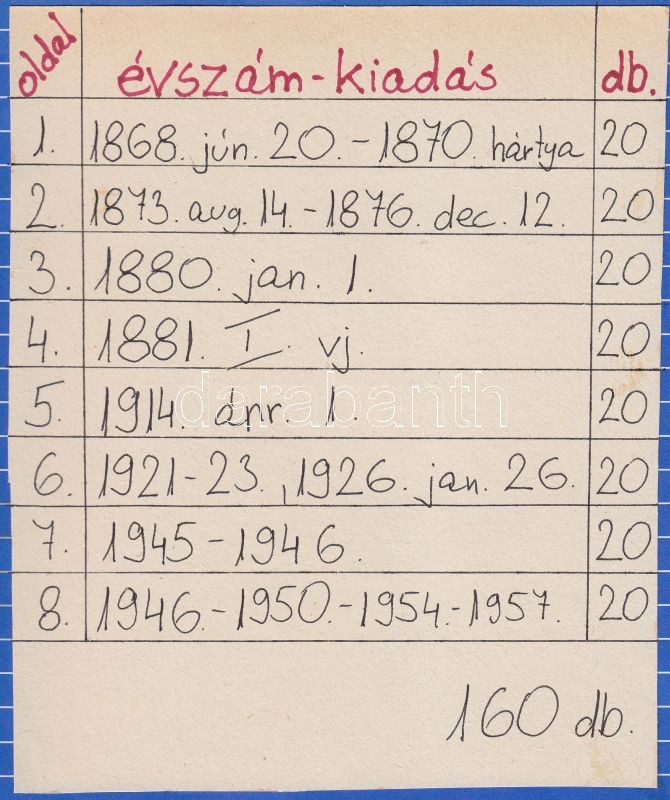 oldal évszám-kiadás db.
1. 1868. jún. 20. - 1870. hártya 20
2. 1873. aug. 14. - 1876. dec. 12. 20
3. 1880. jan. 1. 20
4. 1881. I. vj. 20
5. 1914. ápr. 1. 20
darabanth
6. 1921-23., 1926. jan. 26. 20
7. 1945 - 1946. 20
8. 1946. - 1950. - 1954. - 1957. 20
160 db.